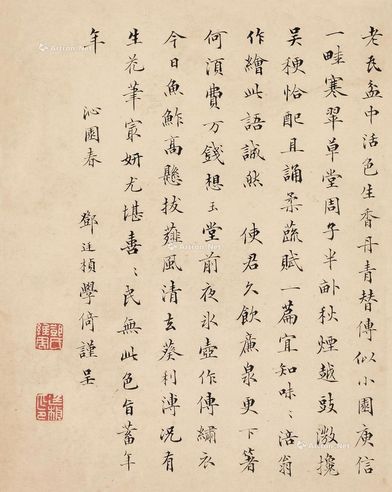 老瓦盆中活色生香丹青替傳似小園庾信
一畦寒翠草堂周子半畝秋煙越豉激攙
吳稉恰配且誦柔蔬賦一篇宜知味〻涪翁
作繪此語誠然 使君久飲廉泉更下箸
何須費万錢想玉堂前夜氷壺作傳繡衣
今日魚鮓高懸拔薤風清去葵利溥況有
生花筆寫妍尤堪喜〻民無此色旨蓄年
年
沁園春 鄧廷楨學倚謹呈